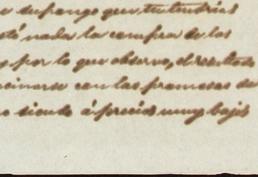 supongo que tu tendrias
nada la compra de los
y por lo que observo, el resultado
con las promesas de
siendo á precios muy bajos